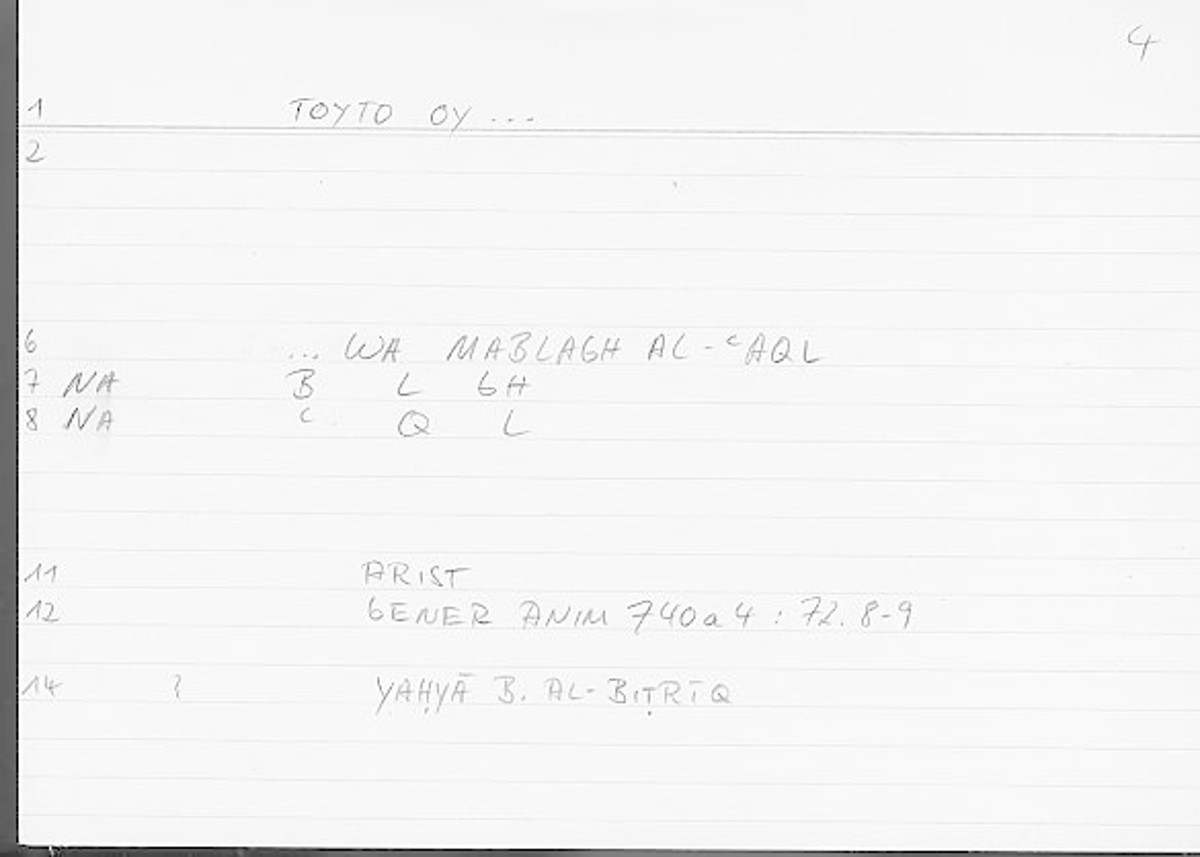 4
1 TOYTO OY ...
2
6 ... WA MABLAGH AL-ʿAQL
7 NA B L GH
8 NA ʿ Q L
11 ARIST
12 GENER ANIM 740a4 : 72.8-9
14 ? YAḤYĀ B. AL-BIṬRĪQ